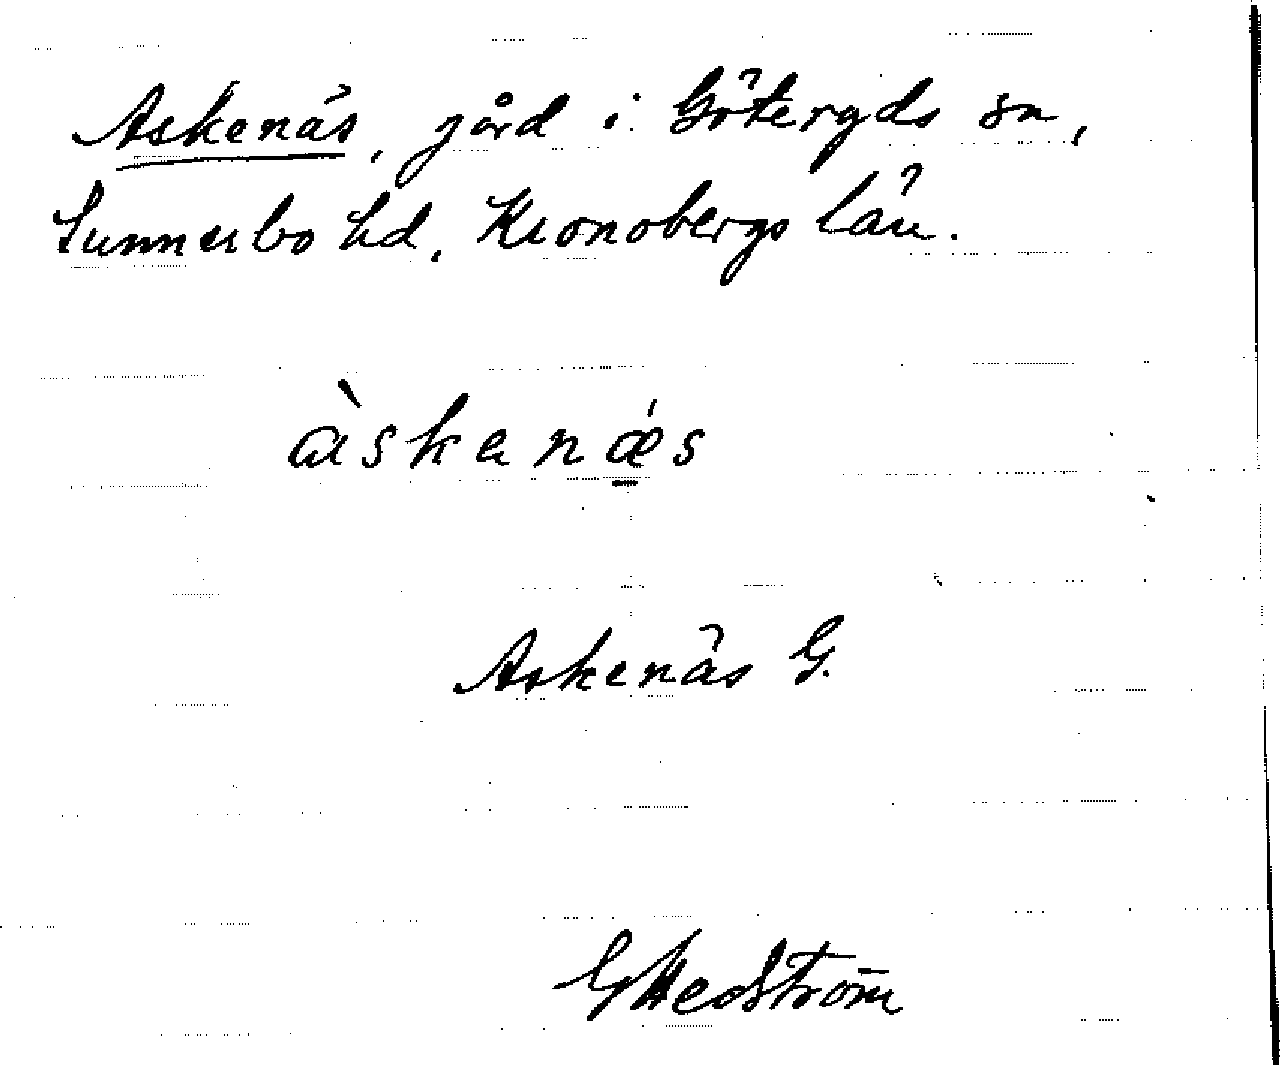 Askenäs, gård i Göteryds sn,
Sunnerbo hd, Kronobergs län.
àskenǽ̱s
Askenäs G.
G Hedström